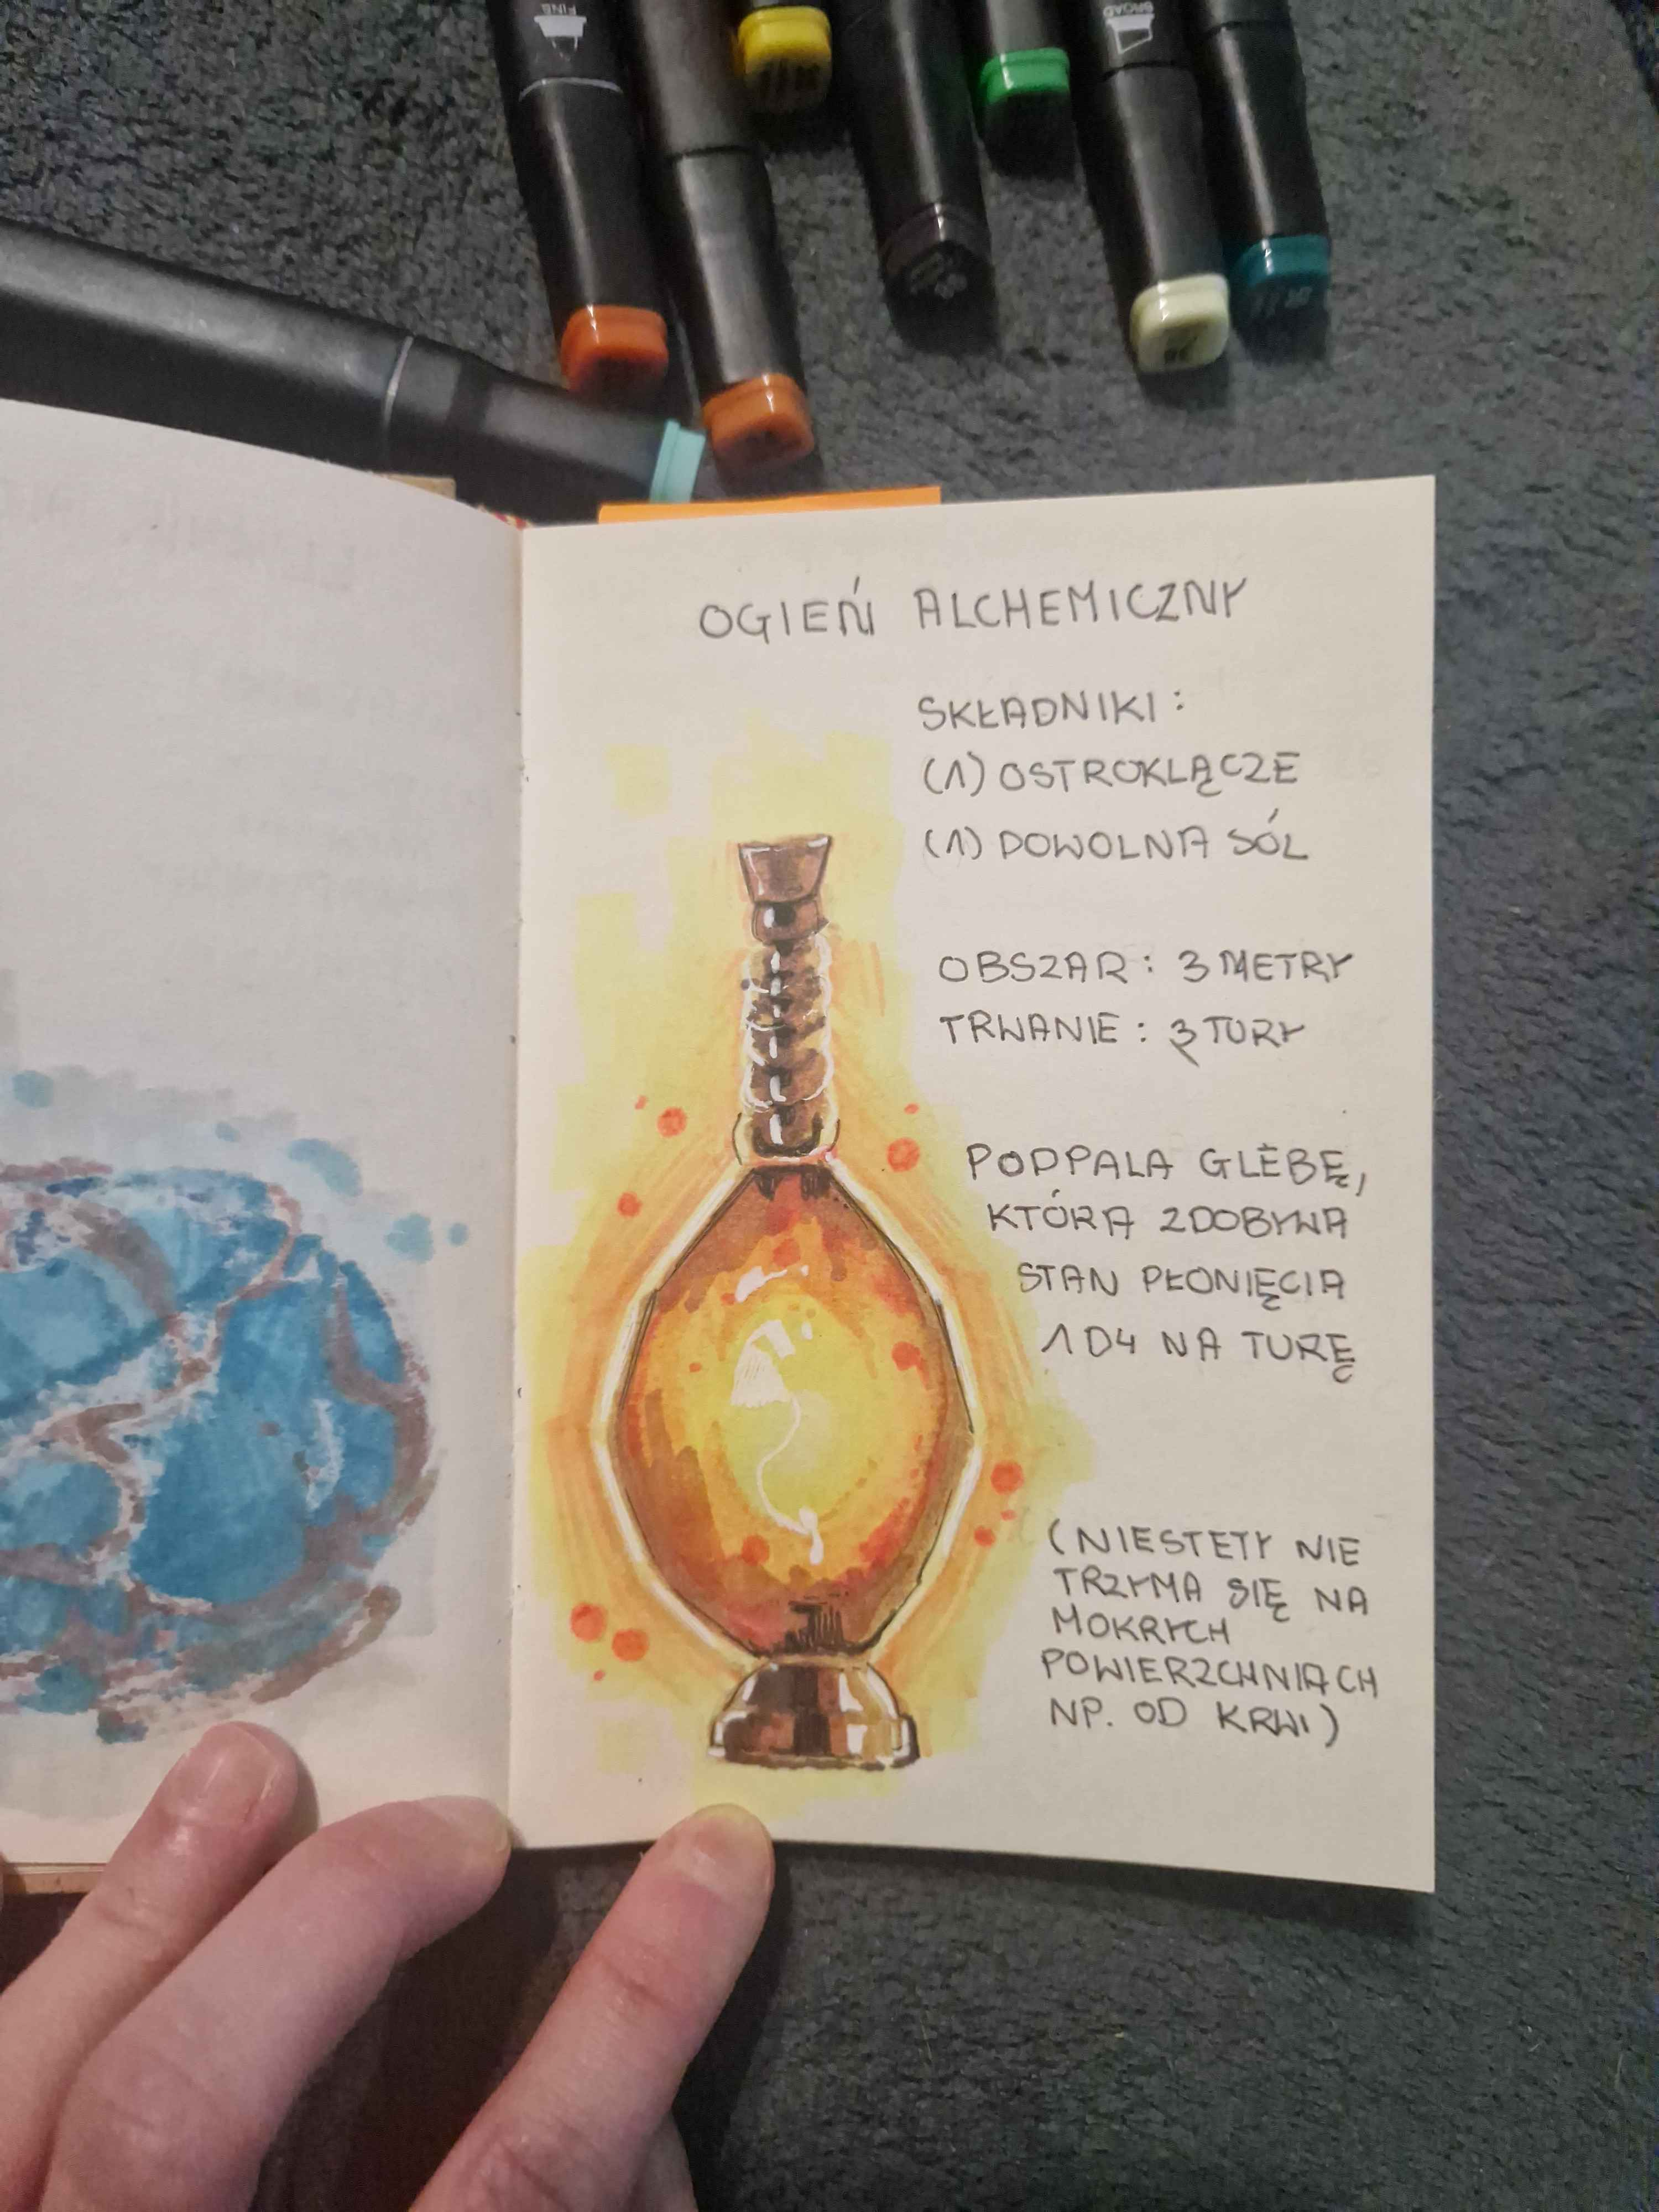 FINE
BROAD
OGIEŃ ALCHEMICZNY
SKŁADNIKI:
(1) OSTROKLĄCZE
(1) DOWOLNA SÓL
OBSZAR: 3 METRY
TRWANIE: 3 TURY
PODPALA GLEBĘ,
KTÓRA ZDOBYWA
STAN PŁONIĘCIA
1D4 NA TURĘ
(NIESTETY NIE
TRZYMA SIĘ NA
MOKRYCH
POWIERZCHNIACH
NP. OD KRWI)